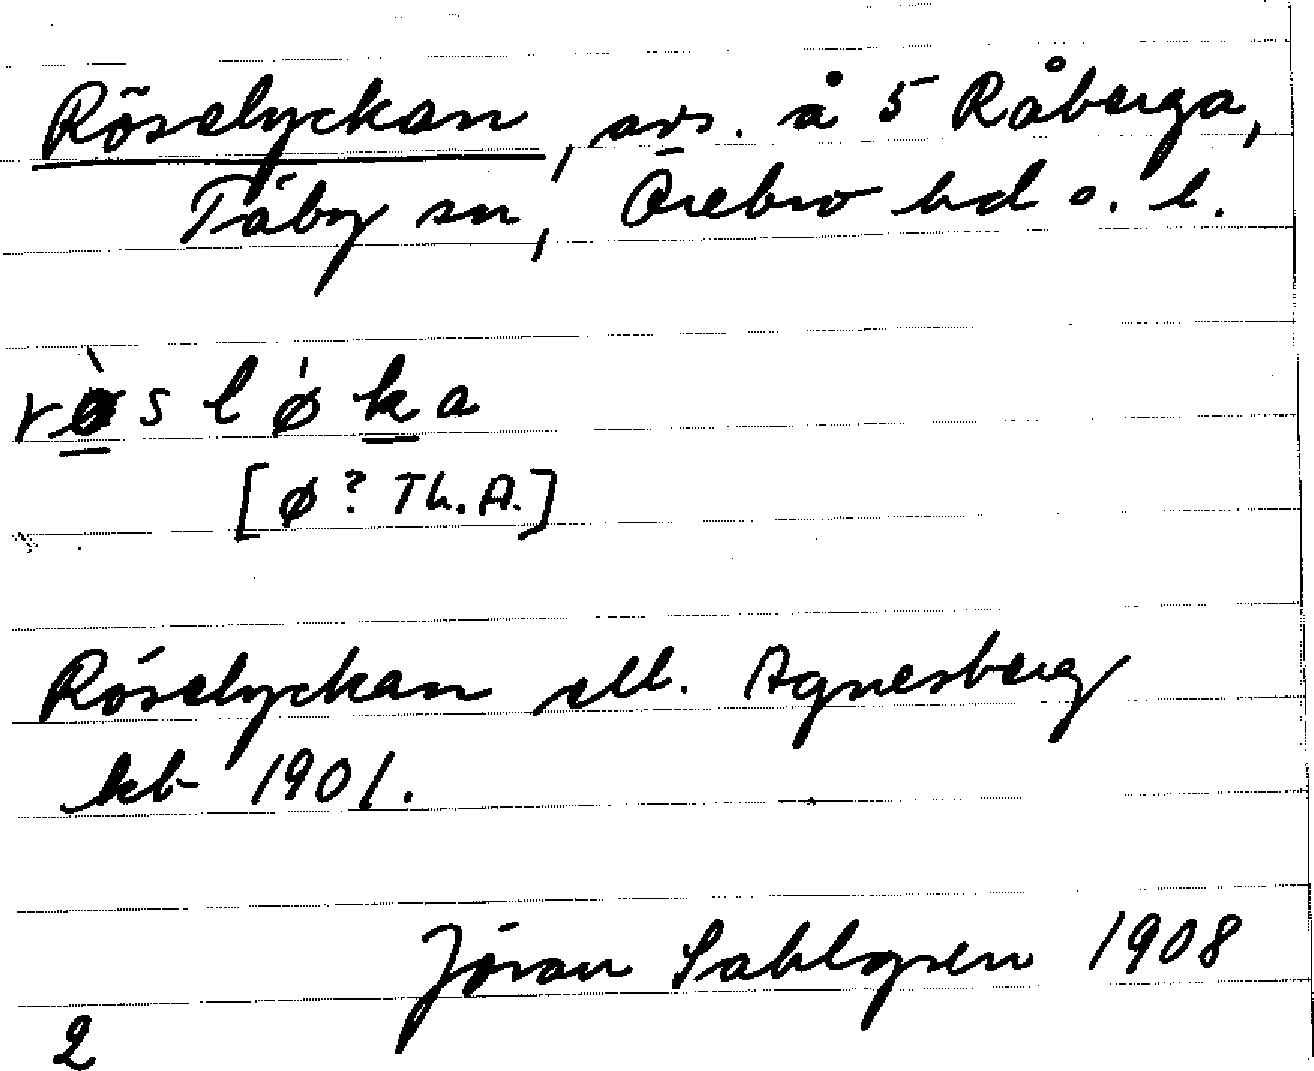 Röselyckan, avs. å 5 Råberga,
Täby sn, Örebro hd o. l.
rø̀sløka
[ø? Th.A.]
Röselyckan ell. Agnesberg
kb 1901.
Jöran Sahlgren 1908
2